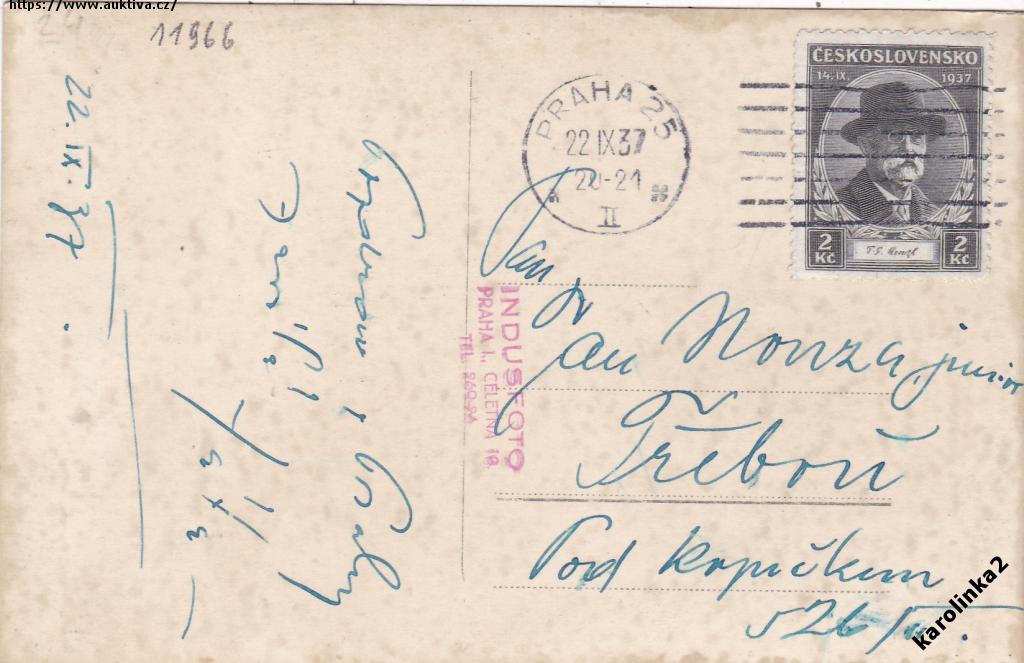 https://www.auktiva.cz/
11966
22. IX. 37.
Pozdrav z Prahy
PRAHA 25
22 IX 37
20-21
II
ČESKOSLOVENSKO
14. IX. 1937
2 Kč
2 Kč
INDUSFOTO
PRAHA I., CELETNÁ 10.
TEL.
Pan
Dr
Jan Honza, junior
Třeboň
Pod kopečkem
526/II.
karolinka2